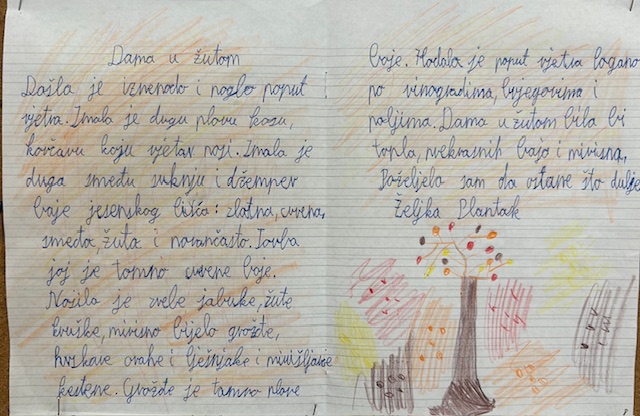 Dama u žutom
Došla je iznenada i naglo poput
vjetra. Imala je dugu plavu kosu,
kovčavu koju vjetar nosi. Imala je
duga smeđu suknju i džemper
boje jesenskog lišća: zlatna, crvena,
smeđa, žuta i narančasta. Torba
joj je tamno crvene boje.
Nosila je zrele jabuke, žute
kruške, mirisno bijelo grožđe,
hrskave orahe i lješnjake i
kestene. Grožđe je tamno plave
boje. Hodala je poput vjetra lagano
po vinogradima, brjegovima i
poljima. Dama u žutom bila bi
topla, prekrasnih boja i mirisna.
Poželjela sam da ostane što dulje.
Željka Plantak